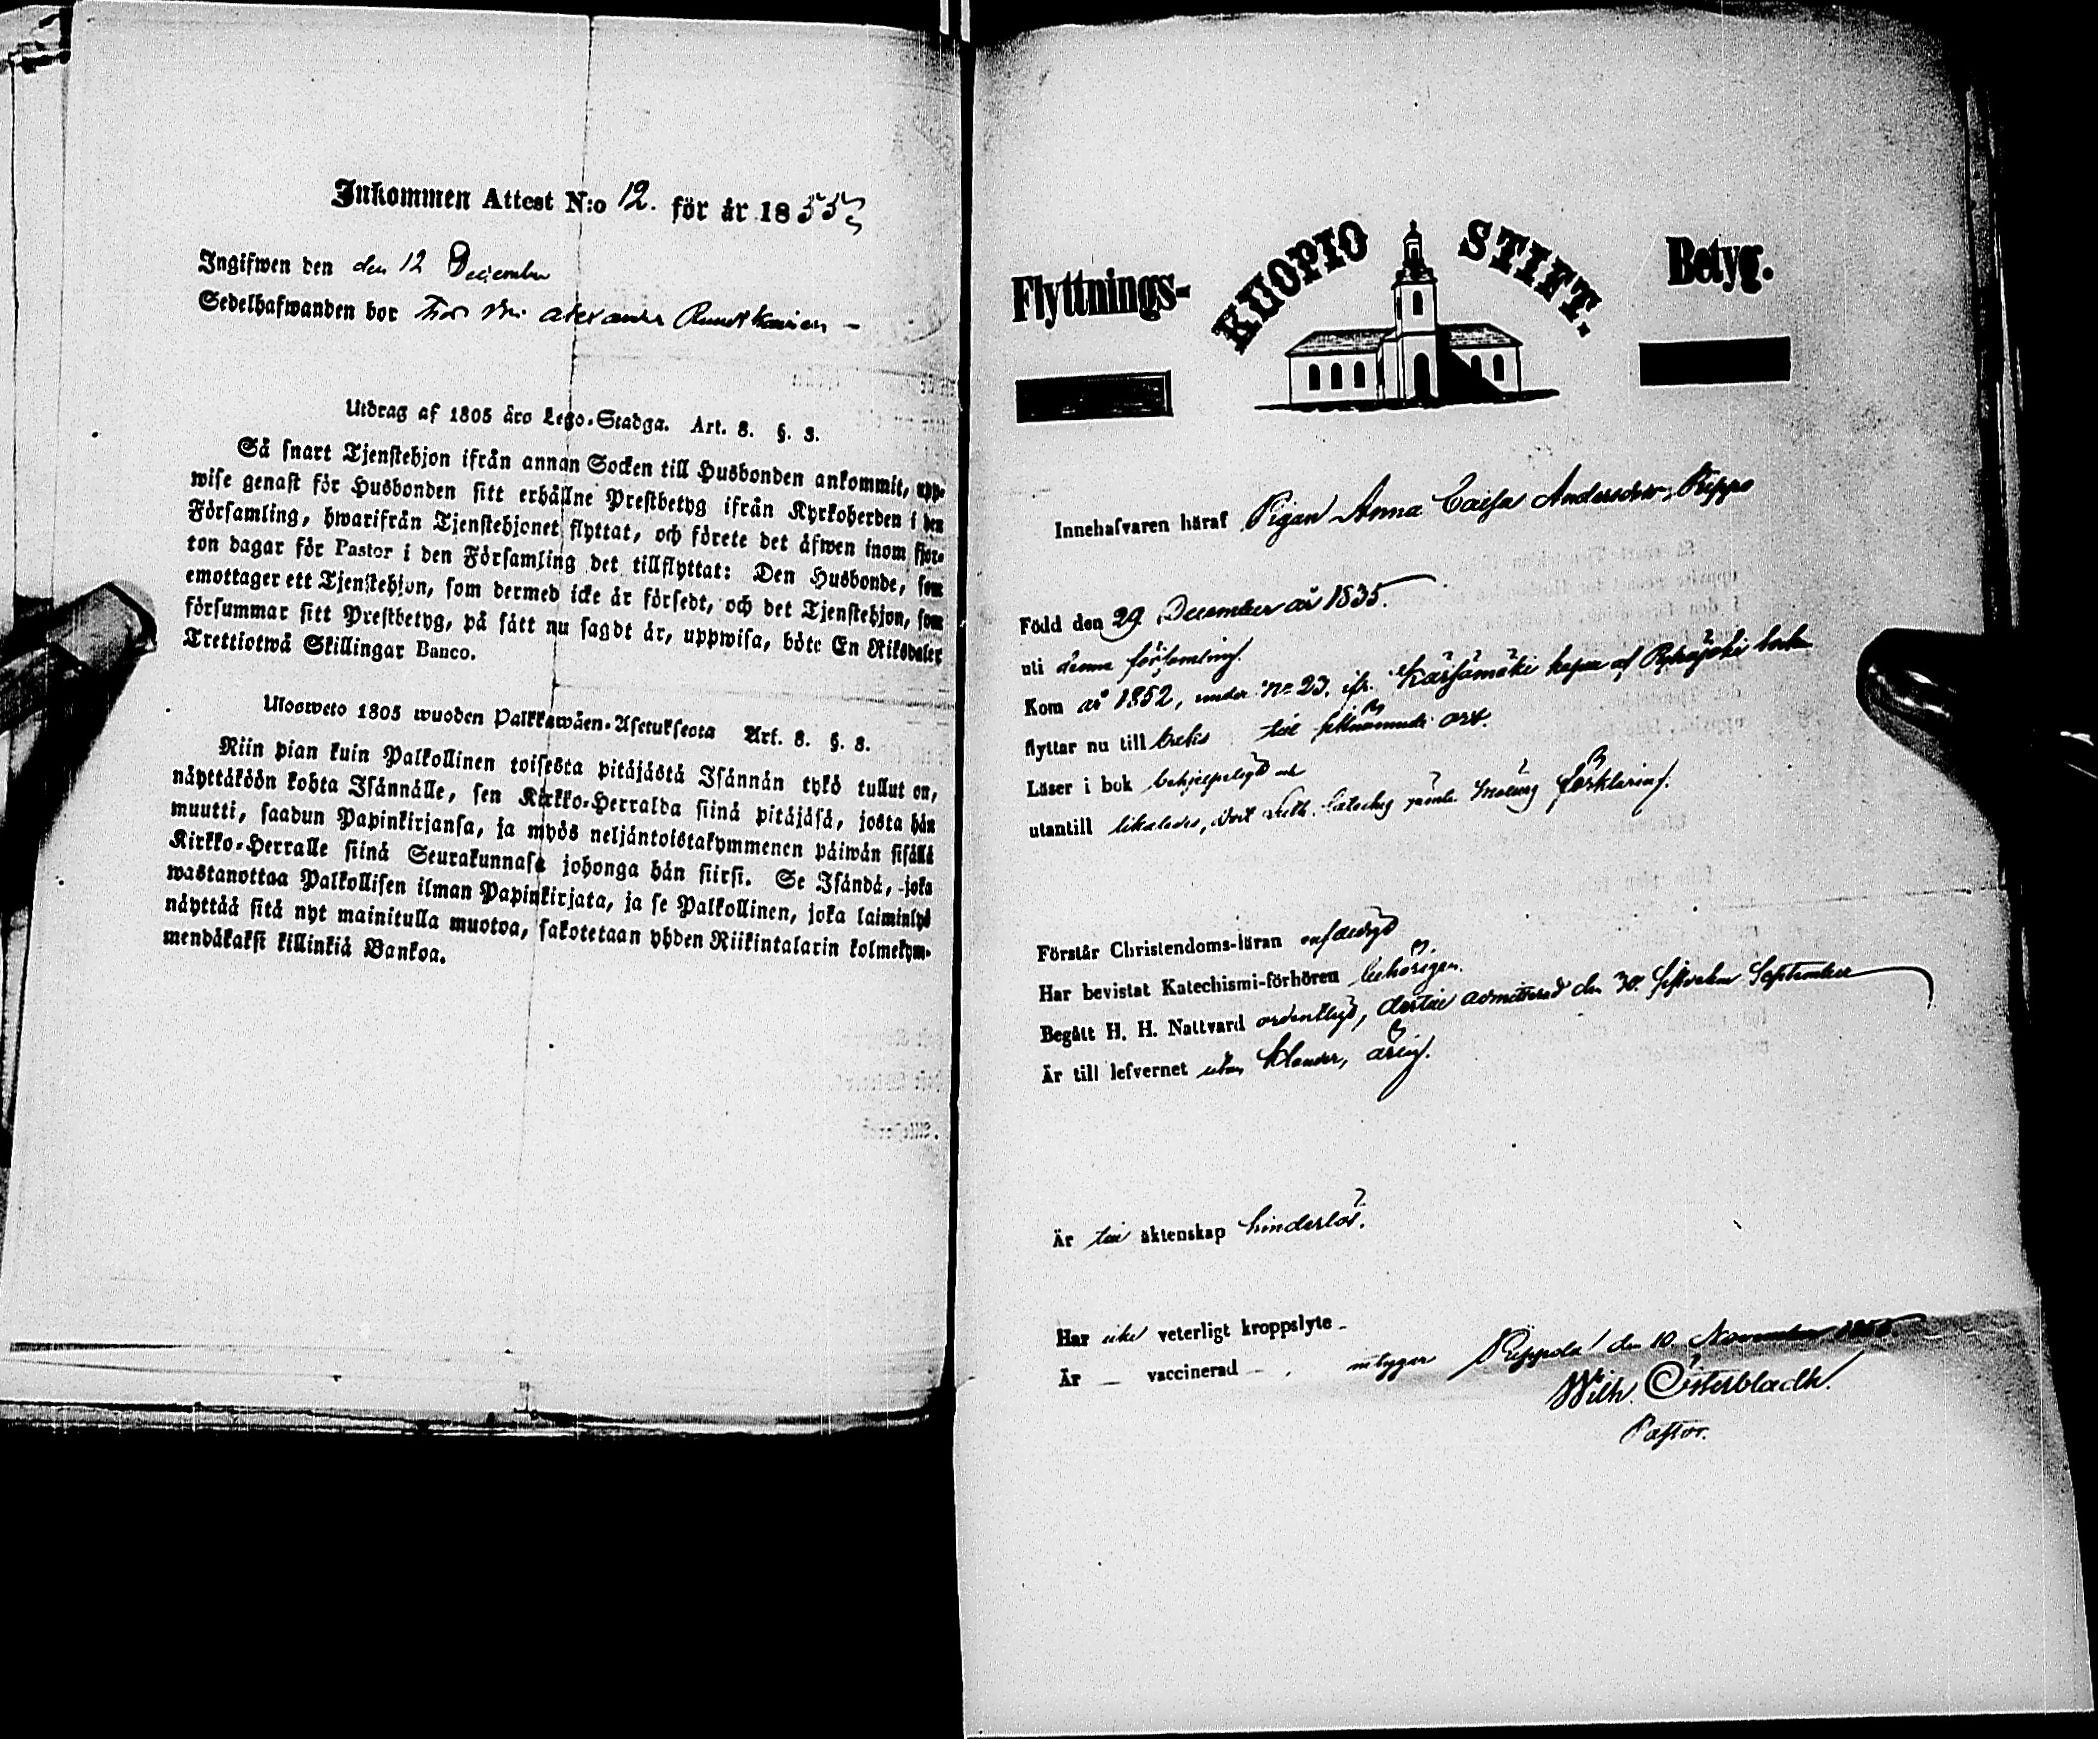 Inkommen Attest N:o 12. för år 1855
Ingifwen den den 12 December
Sedelhafwanden bor Alexander
Utdrag af 1805 års Lego-Stadga. Art. 8. §. 3.
Så snart Tjenstehjon ifrån annan Socken till Husbonden ankommit, upp-
wise genast för Husbonden sitt erhållne Prestbetyg ifrån Kyrkoherden i den
Församling, hwarifrån Tjenstehjonet flyttat, och förete det åfwen inom fjor-
ton dagar för Pastor i den Församling det tillflyttat: Den Husbonde, som
emottager ett Tjenstehjon, som dermed icke är försedt, och det Tjenstehjon, som
försummar sitt Prestbetyg, på sätt nu sagdt är, uppwisa, böte En Riksdaler
Trettiotwå Skillingar Banco.
Ulosweto 1805 wuoden Palkkawåen-Asetuksesta Art. 8. §. 3.
Niin pian kuin Palkollinen toisesta pitåjåstå Isånnån tykö tullut on,
nåyttåköön kohta Isånnålle, sen Kirkko-Herralda siinå pitåjåså, josta hån
muutti, saadun Papinkirjansa, ja myös neljåntoistakymmenen påiwån sisållå
Kirkko-Herralle siinå Seurakunnasa johonga hån siirsi. Se Isåndå, joka
wastanottaa Palkollisen ilman Papinkirjata, ja se Palkollinen, joka laiminlyö
nåyttåå sitå nyt mainitulla muotoa, sakotetaan yhden Riikintalarin kolmekym-
mendåkaksi killinkiå Bankoa.
Flyttnings- KUOPIO STIFT. Betyg.
Innehafvaren häraf Pigan Anna Caisa Andersdr Pippo
Född den 29 December år 1835.
uti denna församling.
Kom år 1852, under No 23, ifr. Kärsämäki kapell af Pyhäjoki socken
flyttar nu till till sistnämnde ort.
Läser i bok behjelpeligt och
utantill likaledes, förklaring.
Förstår Christendoms-läran enfaldigt
Har bevistat Katechismi-förhören behörigen.
Begått H. H. Nattvard ordentligt, dertill admitterad den 30 sistvekne September
Är till lefvernet utan klander, ärlig.
Är till äktenskap hinderlös.
Har icke veterligt kroppslyte
Är — vaccinerad —, intygar Pippola den 10. November 1855
Wilh. Österbladh.
Pastor.